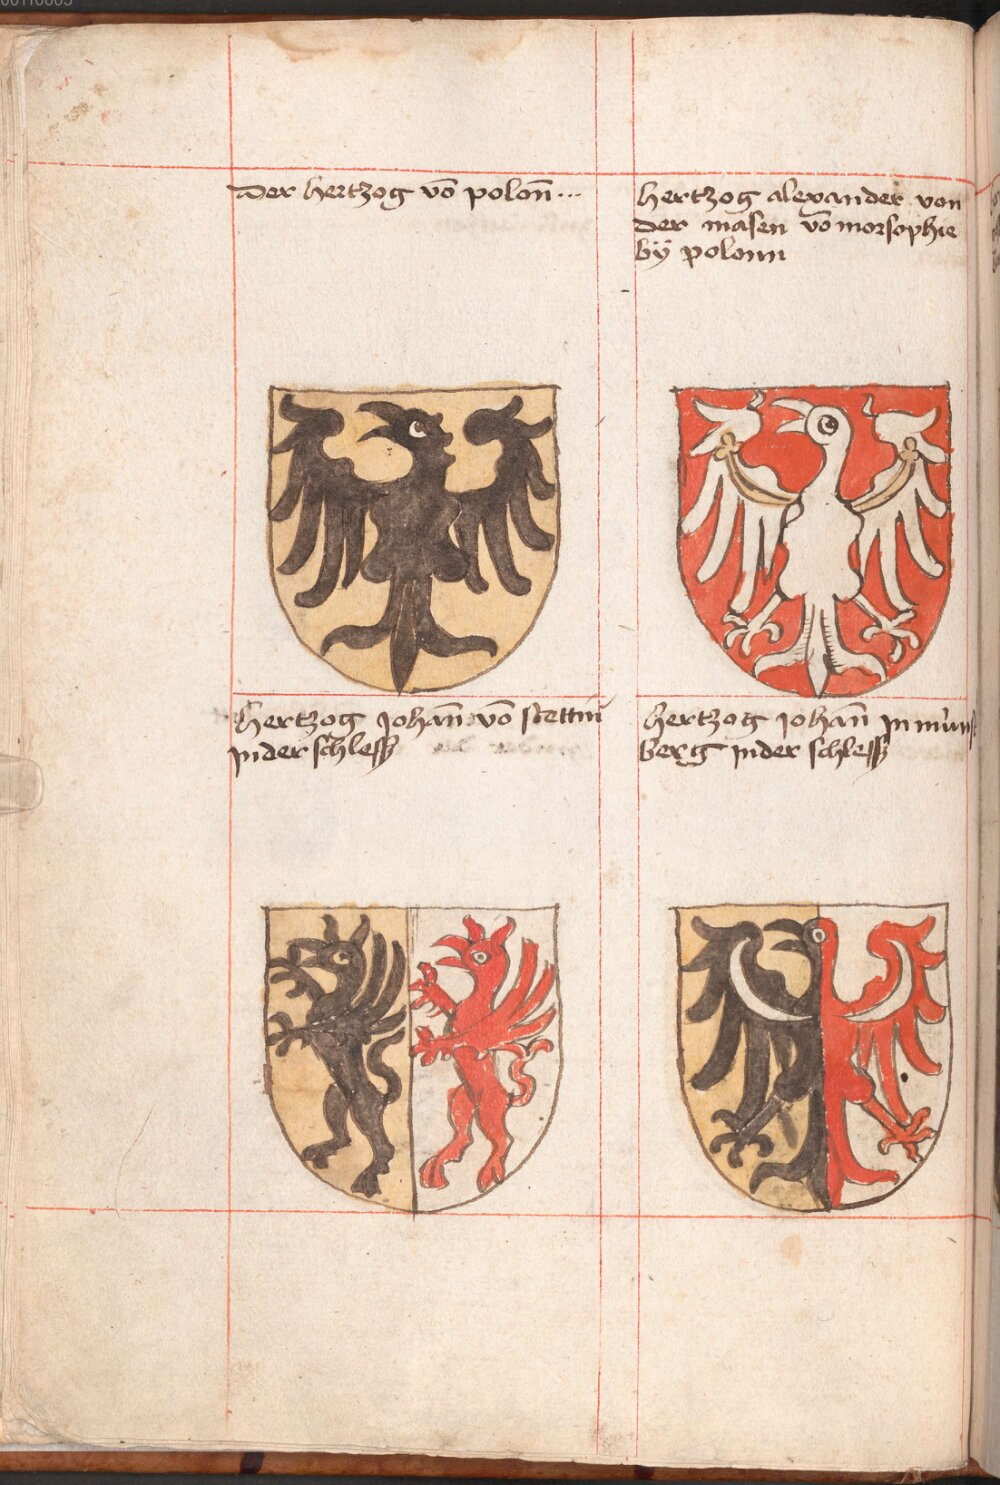 Der hertzog vō polon̄...
hertzog alexander von
der masen vō morsophie
bÿ polonn
hertzog Johan̄ vō stettin
Jn der schlesß
hertzog Johan̄ Jn müns
berg Jn der schlesß